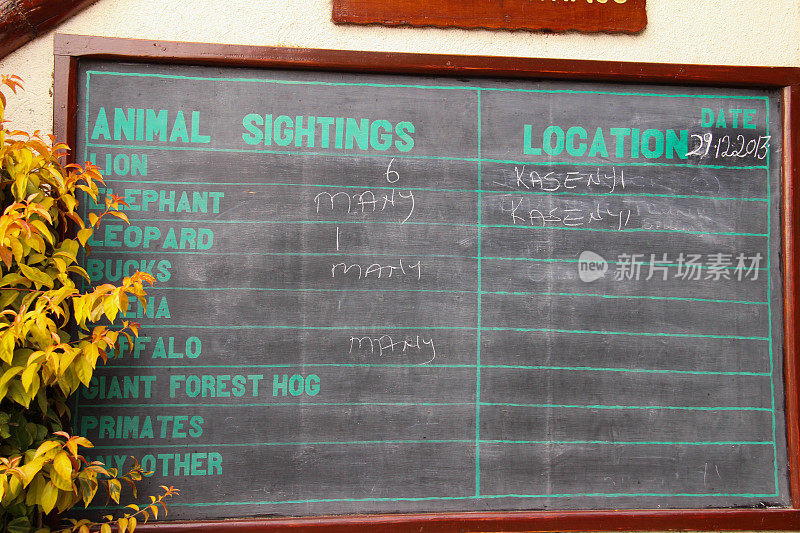 DATE
ANIMAL SIGHTINGS LOCATION 29.12.2013
LION 6 KASENYI
ELEPHANT MANY KASENYI
LEOPARD 1
BUCKS MANY
BUFFALO MANY
GIANT FOREST HOG
PRIMATES
ANY OTHER
new 新图片视界